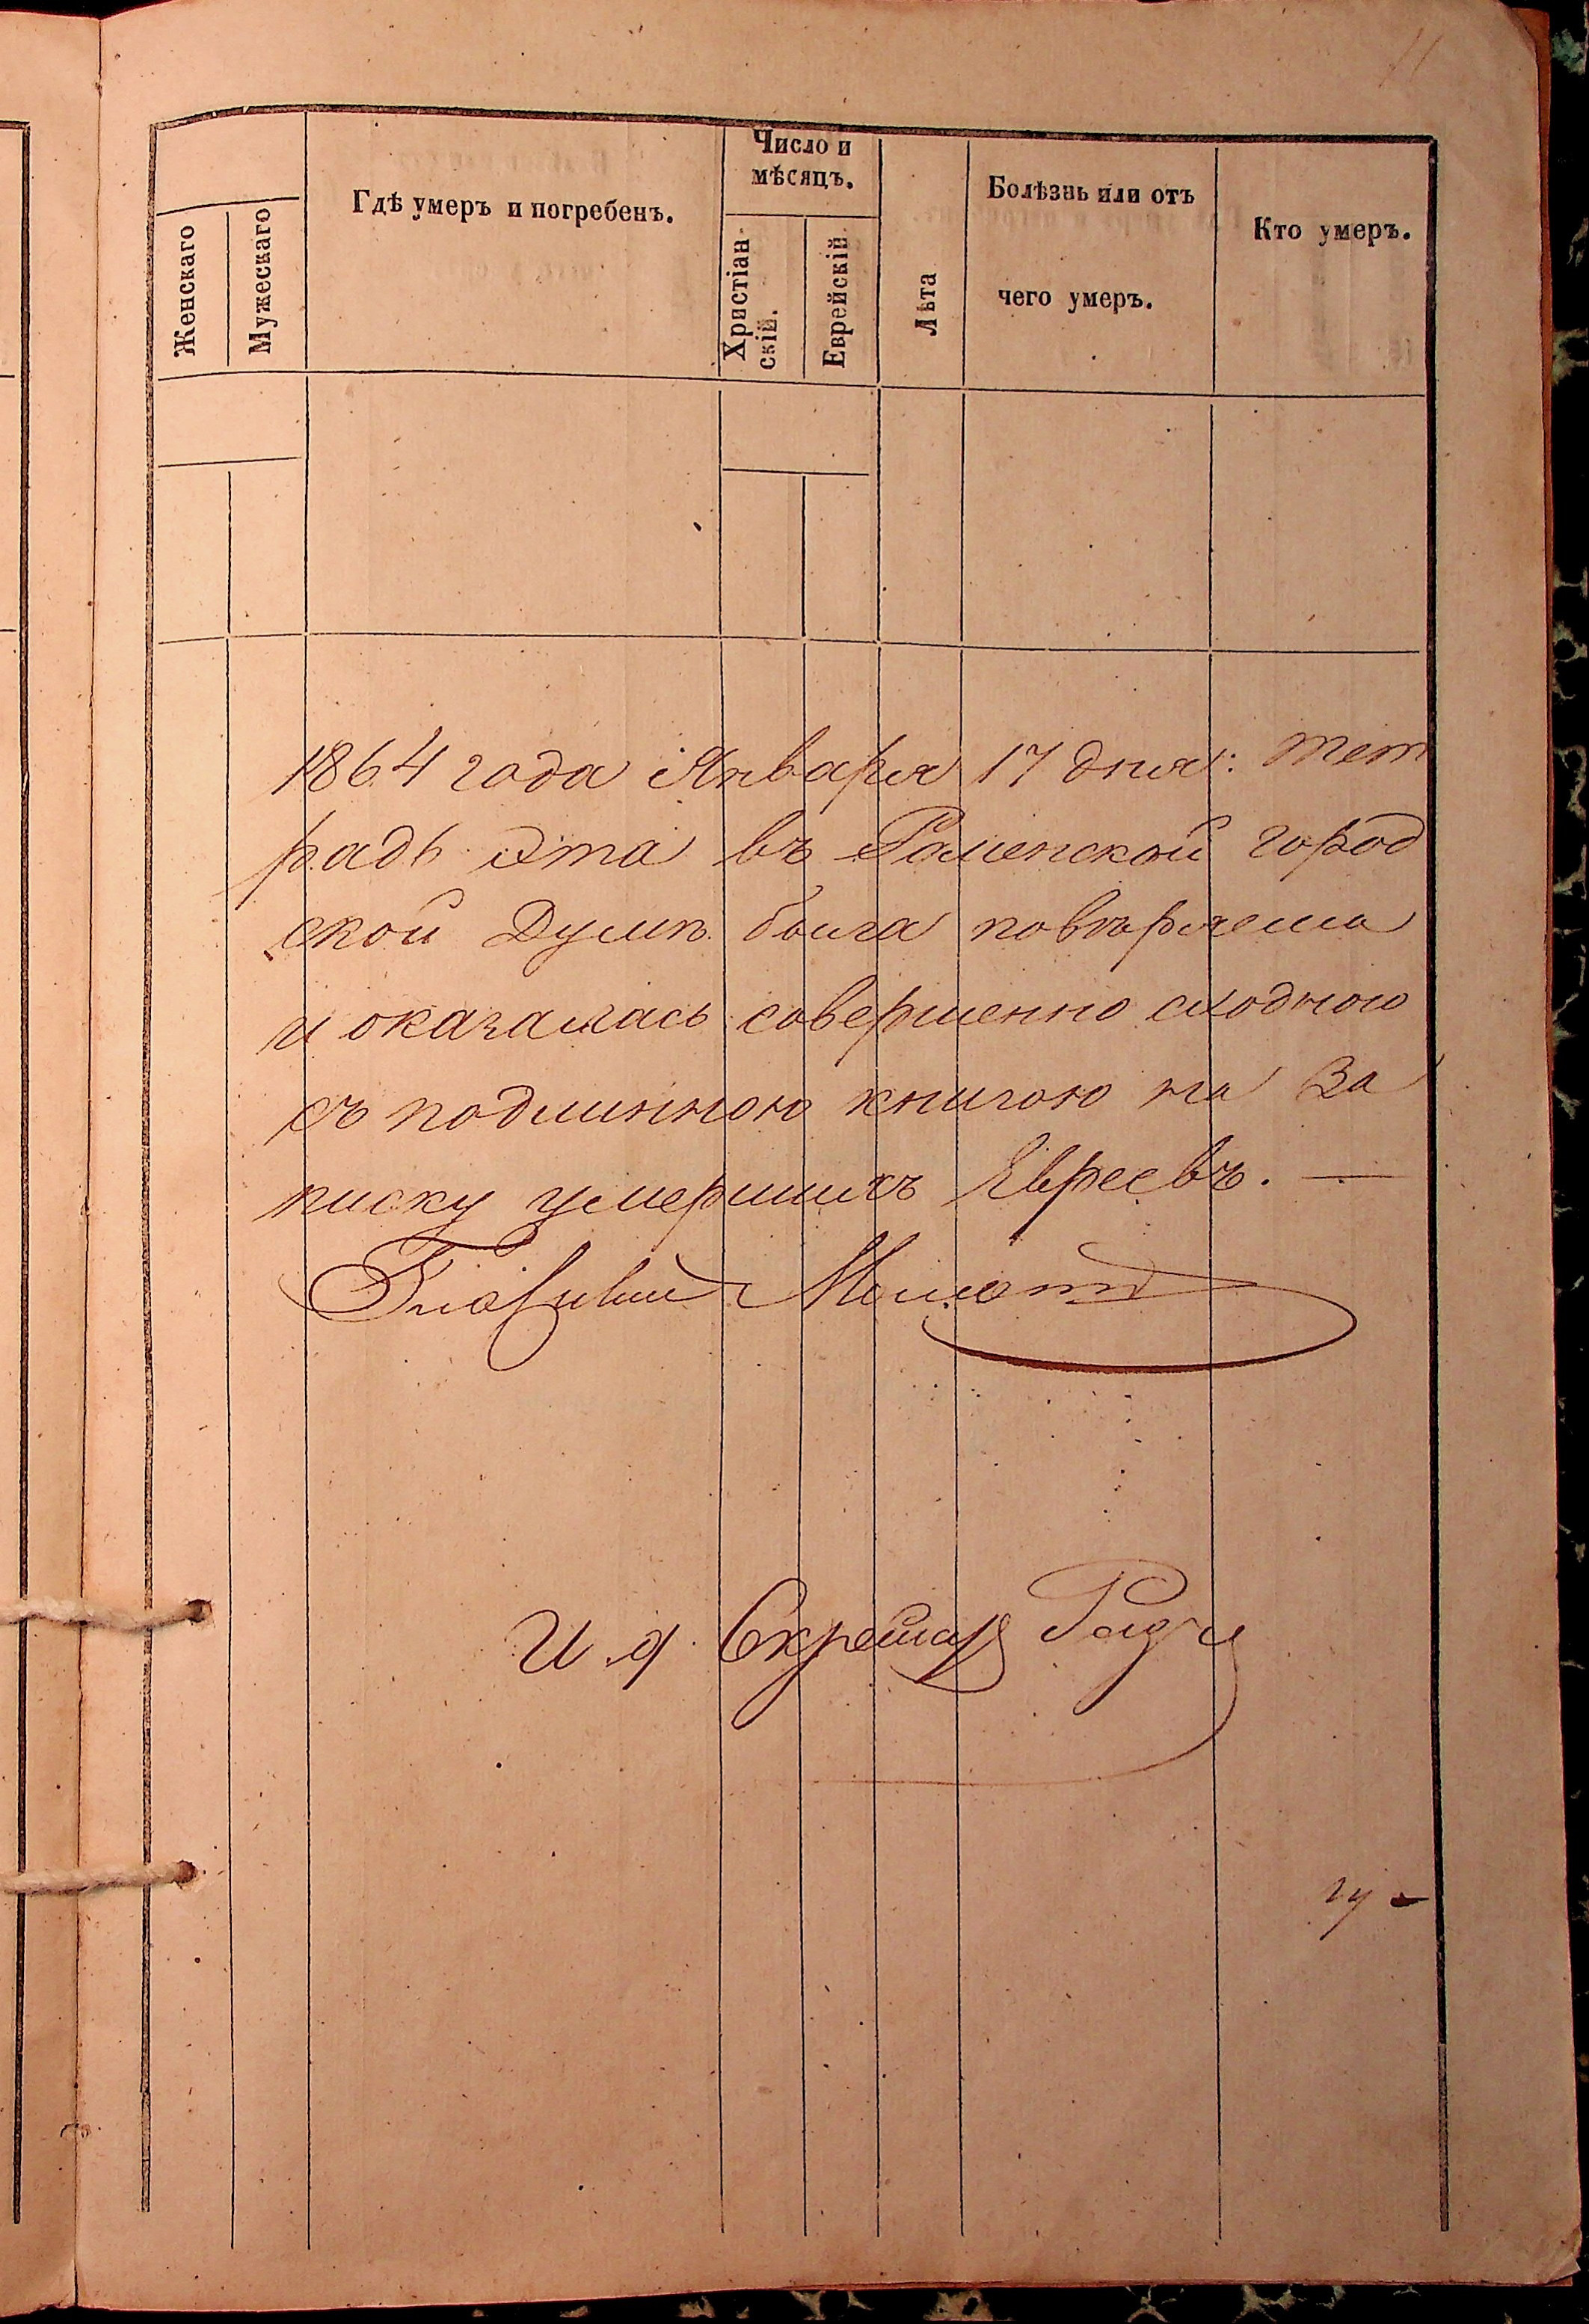 11
Женскаго
Мужескаго
Гдѣ умеръ и погребенъ.
Число и
мѣсяцъ.
Христіан-
скій.
Еврейскій
Лѣта
Болѣзнь или отъ
чего умеръ.
Кто умеръ.
1864 года Января 17 дня: тет
радь эта въ Роменской город
ской Думѣ была повѣряема
и оказалась совершенно сходною
съ подлинною книгою на За
писку умершихъ Евреевъ. —
И д Секретаря